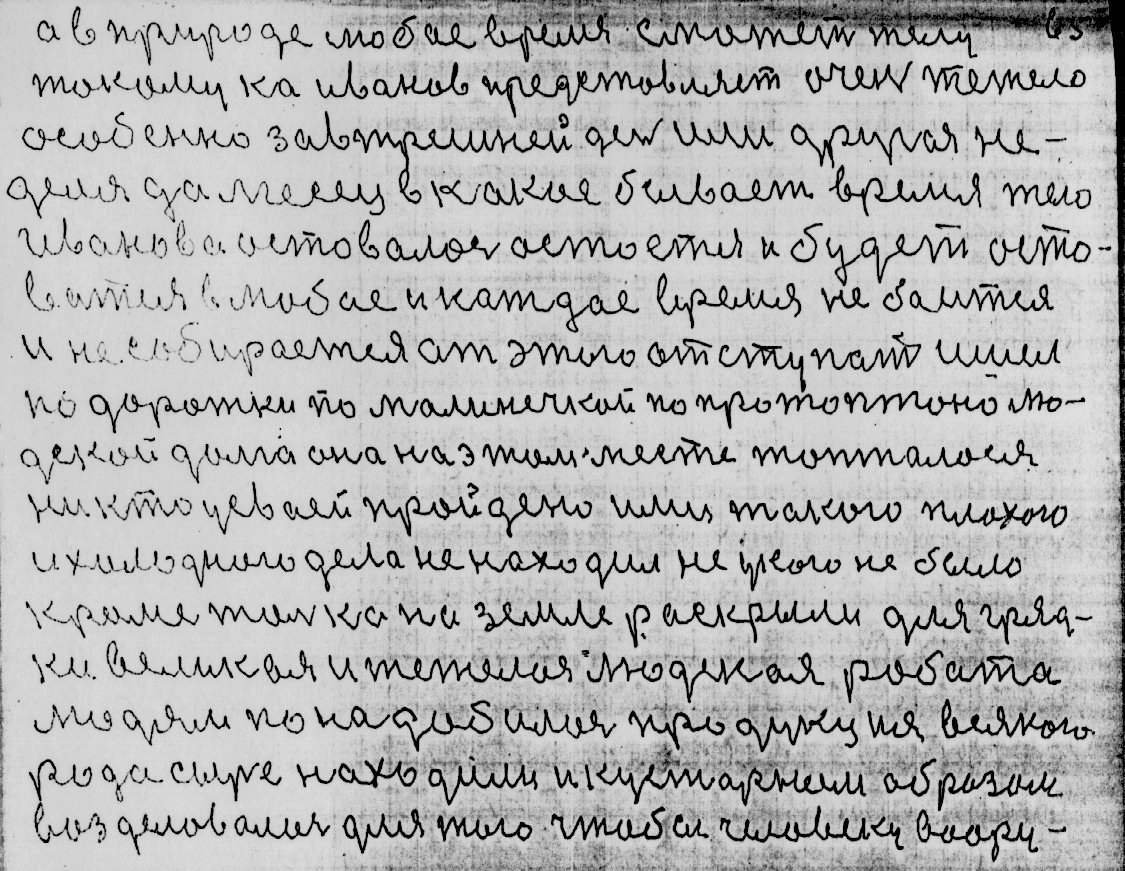 а в природе любое время сможет телу вз
токому ка иванов предстовляет очен тежело
особенно завтрешней ден или другая не-
деля да месец в какое бывает время тело
Иванова остовалос остоется и будет осто-
ватся в любое и каждае время не боится
и не собирается от этого отступат шил
по дорожки по малинечкой по протоптоной лю-
дской долга она на этом месте топталося
никто у еваей пройдено или такого плохого
и холодного дела не находил не у кого не было
кроме толка на земле раскрыли для гряд-
ки великоя и тежелоя людская робата
людям понадобилос продукция всякого
рода сыре находили и кустарным образом
возделовалос для того чтобы человеку воору-